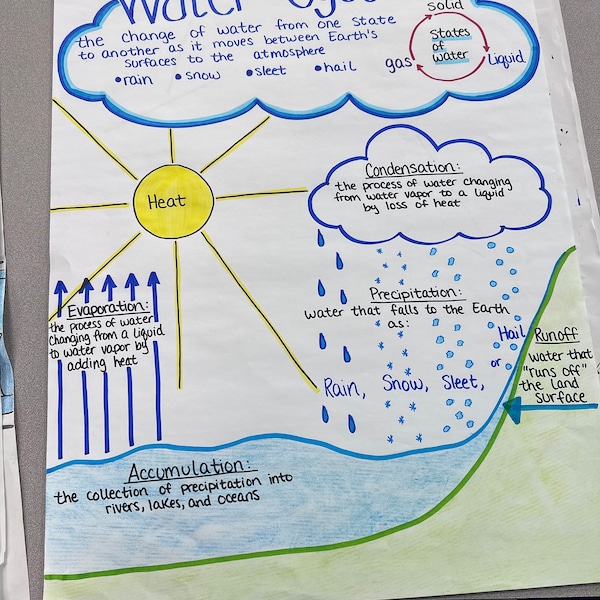 Water Cycle
the change of water from one state
to another as it moves between Earth's
surfaces to the atmosphere
•rain •snow •sleet •hail
solid
States
of
water
gas
Liquid
Heat
Condensation:
the process of water changing
from water vapor to a liquid
by loss of heat
Evaporation:
the process of water
changing from a liquid
to water vapor by
adding heat
Precipitation:
water that falls to the Earth
as:
Rain, Snow, Sleet, or Hail
Runoff
water that
"runs off"
the land
surface
Accumulation:
the collection of precipitation into
rivers, lakes, and oceans